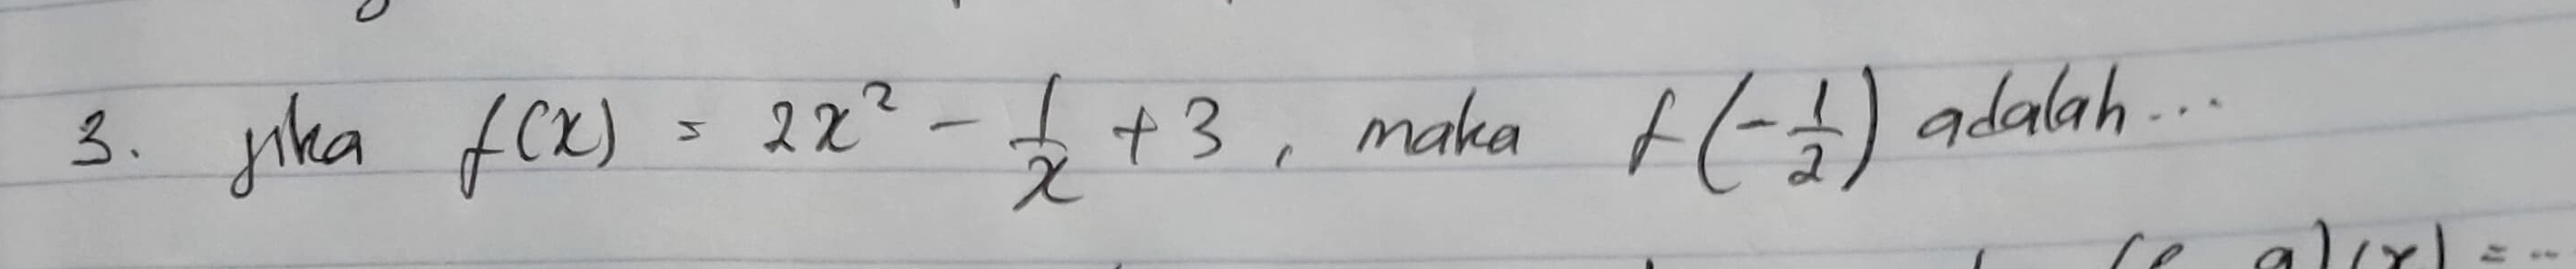 3. jika f(x) = 2x² - 1/x + 3, maka f(-1/2) adalah...
g)(x) = ..